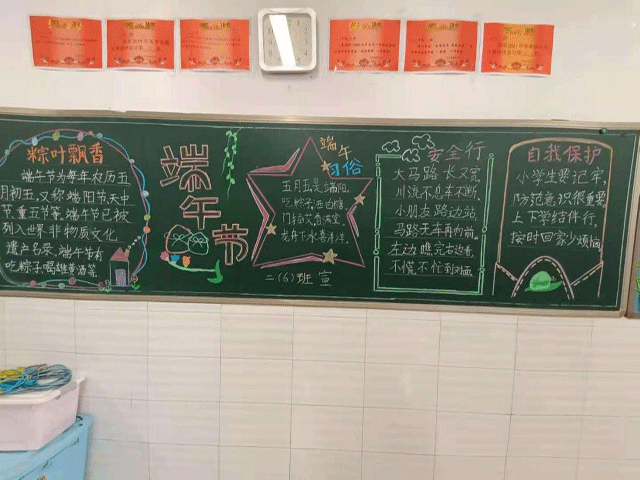 粽叶飘香
端午节为每年农历五
月初五,又称端阳节、天中
节、重五节等。端午节已被
列入世界非物质文化
遗产名录,端午节有
吃粽子,喝雄黄酒等。
端午节
端午
习俗
五月五,是端阳。
吃粽子,洒白糖。
门插艾,香满堂。
龙舟下水喜洋洋。
二(6)班 宣
安全行
大马路 长又宽
川流不息车不断
小朋友 路边站
马路无车再向前
左边瞧完右边看
不慌不忙到对端
自我保护
小学生要记牢,
防范意识很重要
上下学结伴行,
按时回家少烦恼